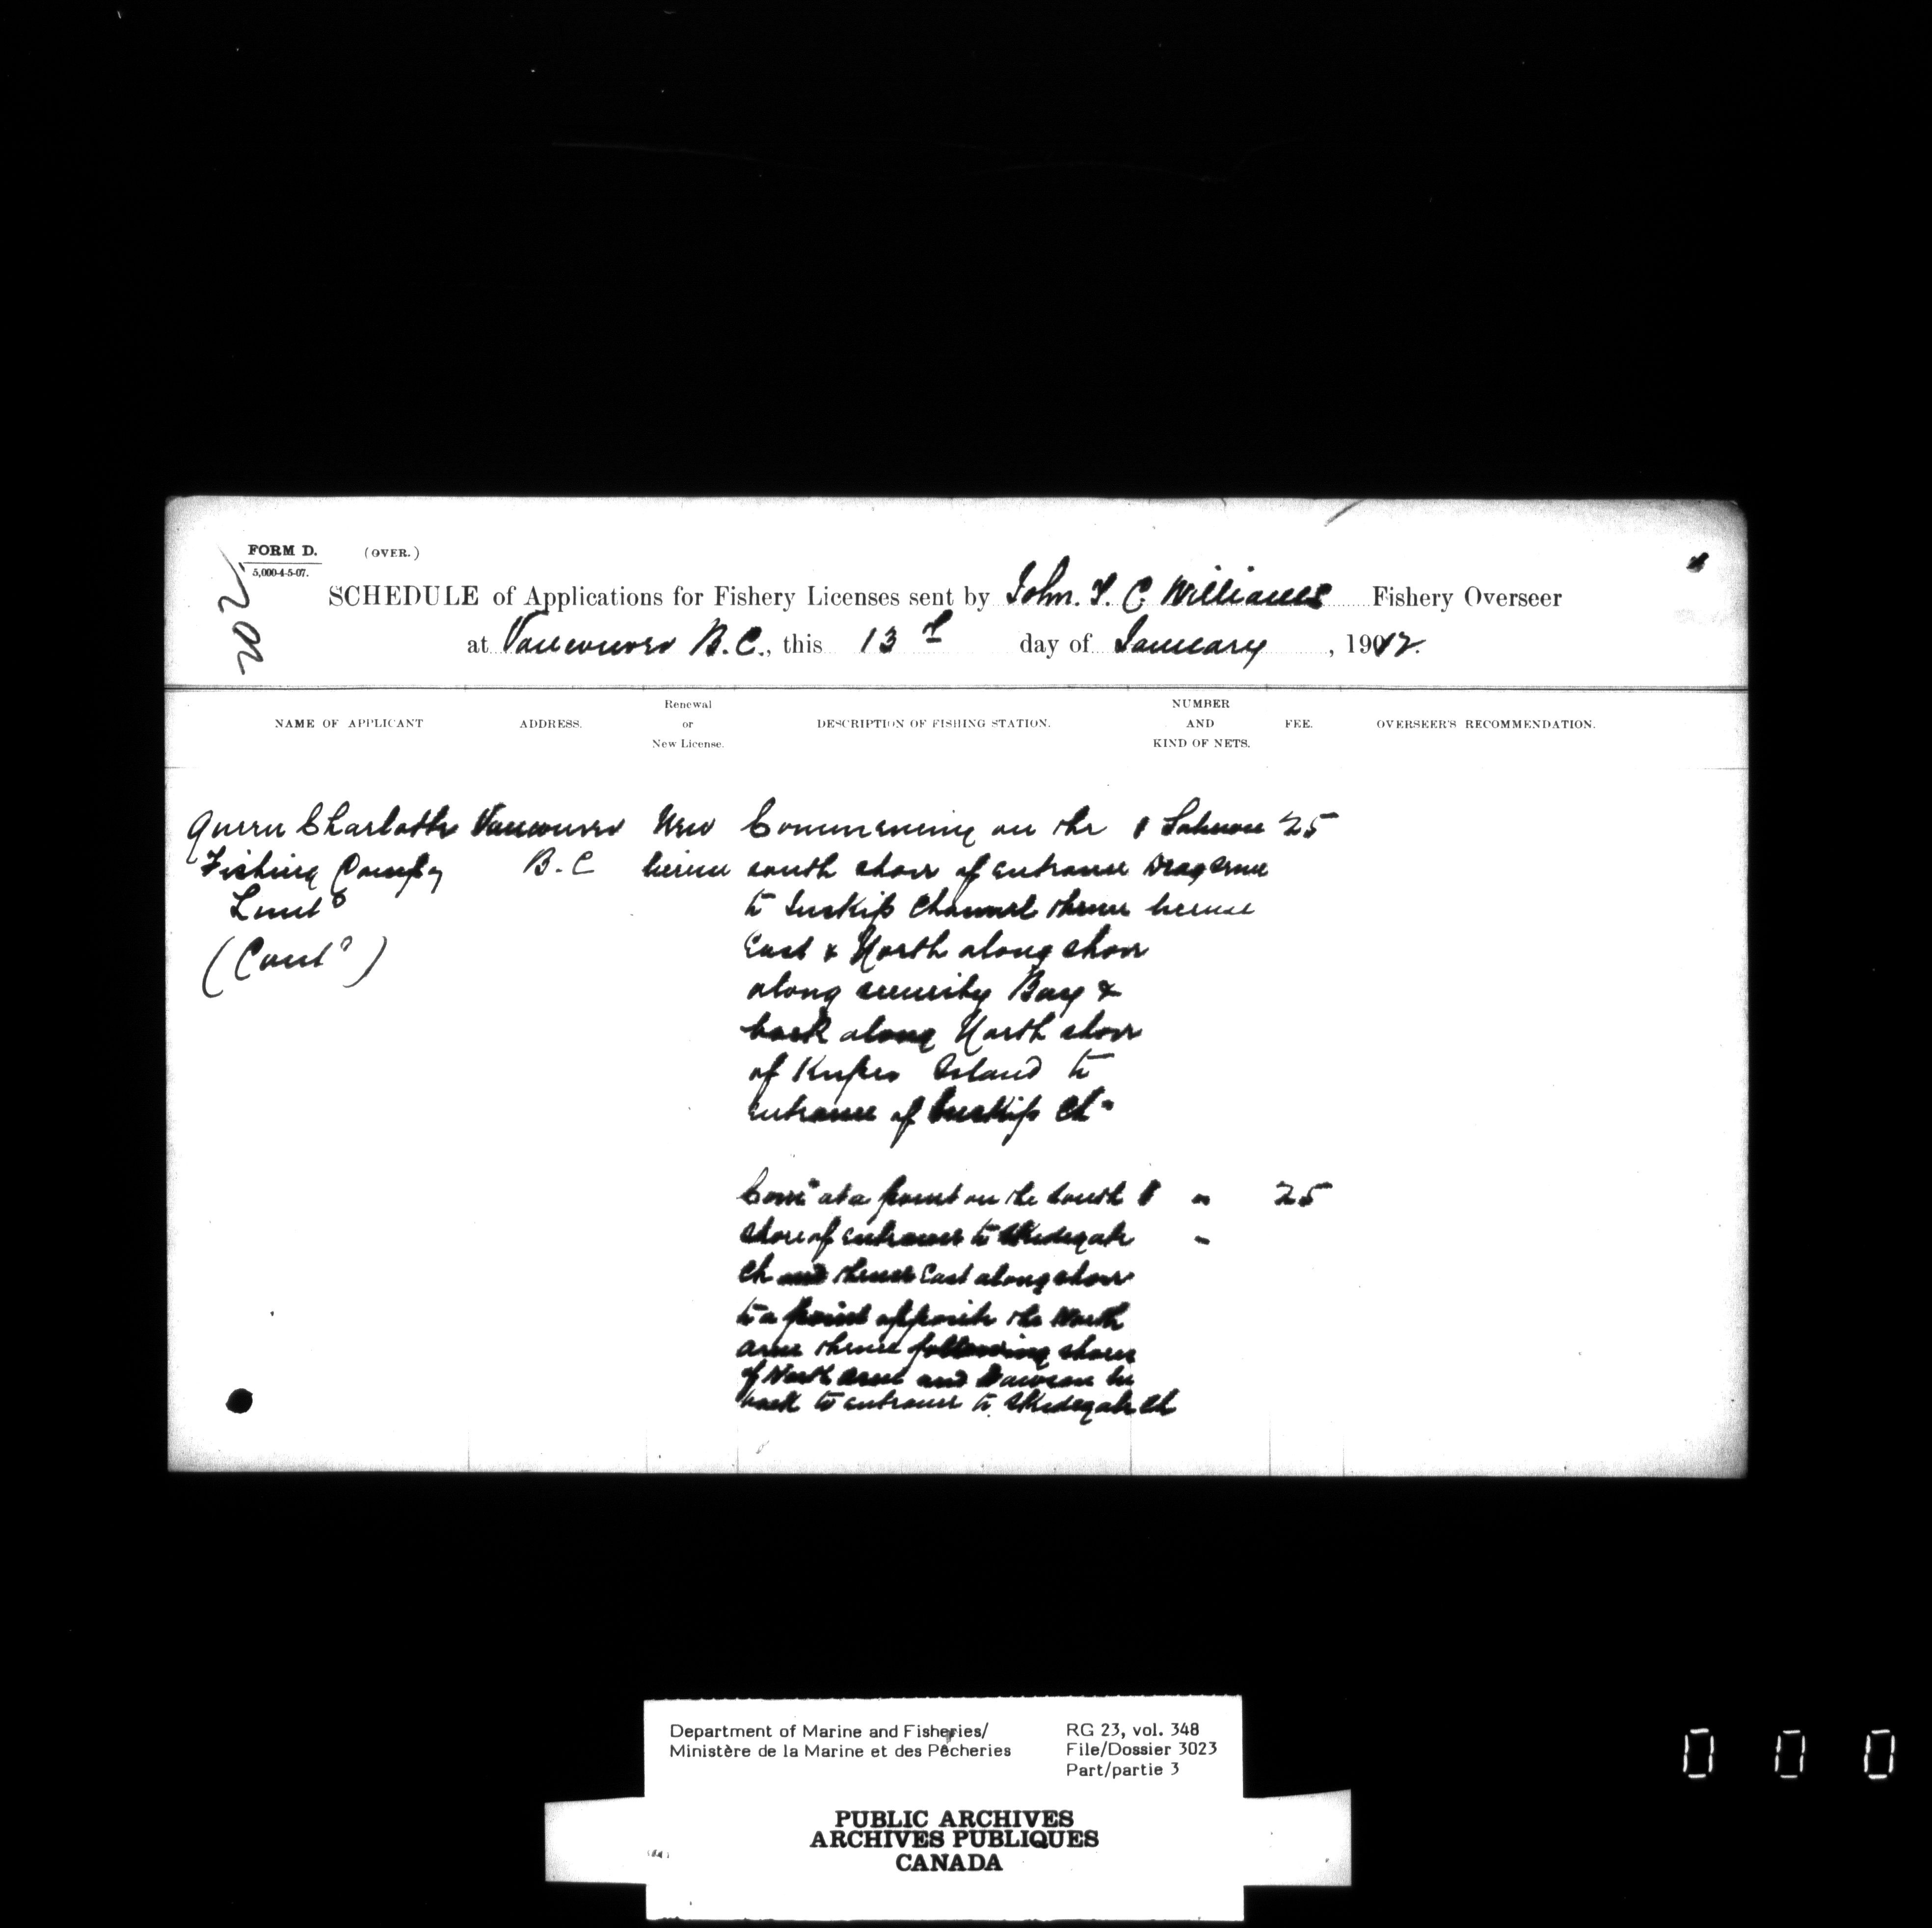 FORM D. (OVER.)
5,000-4-5-07.
202
SCHEDULE of Applications for Fishery Licenses sent by John. T. C. Williams Fishery Overseer
at Vancouver B.C., this 13th day of January, 1912.
NAME OF APPLICANT ADDRESS. Renewal or New License. DESCRIPTION OF FISHING STATION. NUMBER AND KIND OF NETS. FEE. OVERSEER'S RECOMMENDATION.
Queen Charlotte Vancouver New Commencing on the 1 Salmon 25
Fishing Compy B.C license south shore of entrance Drag seine
Limtd to Inskip Channel thence license
(Contd) East & North along shore
along security Bay &
back along North shore
of Kuper Island to
entrance of Inskip Ch.
Com at a point on the south 1 " 25
shore of entrance to Skidegate "
Ch and thence East along shore
to a point opposite the North
arm thence following shore
of North arm and Dawson In
back to entrance to Skidegate Ch
Department of Marine and Fisheries/ RG 23, vol. 348
Ministère de la Marine et des Pêcheries File/Dossier 3023
Part/partie 3
PUBLIC ARCHIVES
ARCHIVES PUBLIQUES
CANADA
0 0 0